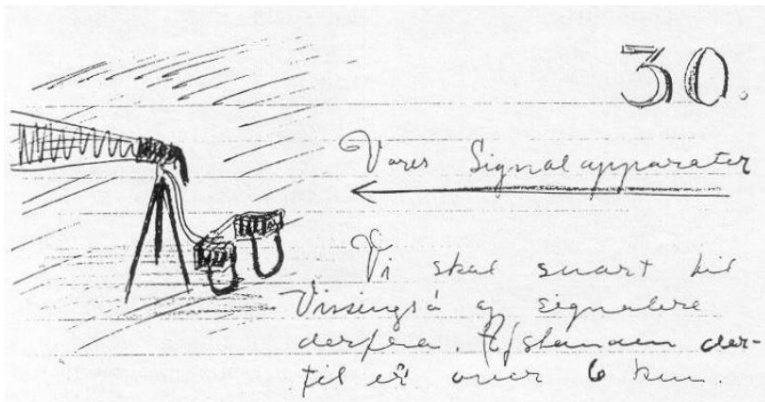 30.
Vores Signalapparater
Vi skal snart til
og signalere
derfra. Afstanden der-
til er over 6 km.